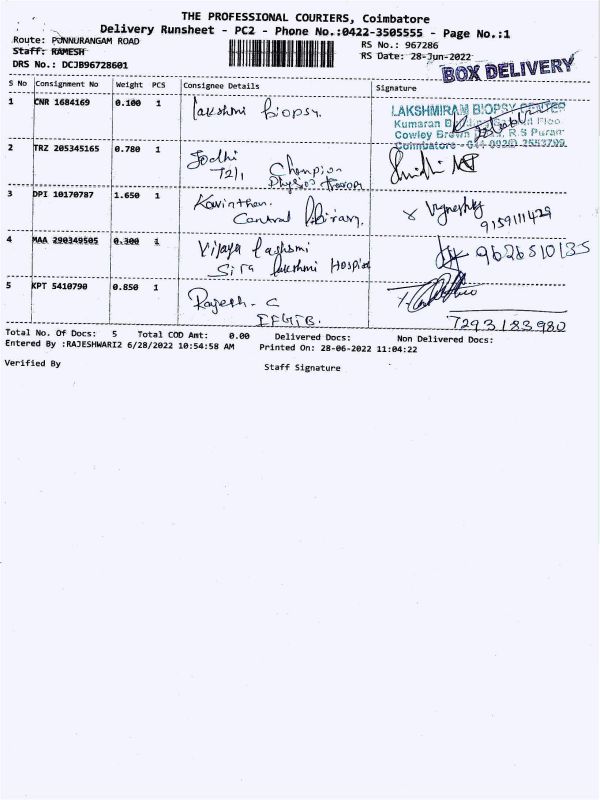 THE PROFESSIONAL COURIERS, Coimbatore
Delivery Runsheet - PC2 - Phone No.:0422-3505555 - Page No.:1
Route: PONNURANGAM ROAD
RS No.: 967286
Staff: RAMESH
RS Date: 28-Jun-2022
DRS No.: DCJB96728601
BOX DELIVERY
S No Consignment No Weight PCS Consignee Details Signature
1 CNR 1684169 0.100 1 Lakshmi Biopsy.
LAKSHMIRAM BIOPSY CENTER
Kumaran
Cowley Brown R.S Puram
Coimbatore
2 TRZ 205345165 0.780 1 Jodhi
72/1 Champion
Physio
3 DPI 10170787 1.650 1 Kavinthan.
Central Library.
Vignesh
9159111429
4 MAA 290349505 0.300 1 Vijaya Lakshmi
Sira Lakshmi Hospital
9626510135
5 KPT 5410790 0.850 1 Rajesh. C
IFGTB.
7293183980
Total No. Of Docs: 5 Total COD Amt: 0.00 Delivered Docs: Non Delivered Docs:
Entered By :RAJESHWARI2 6/28/2022 10:54:58 AM Printed On: 28-06-2022 11:04:22
Verified By
Staff Signature